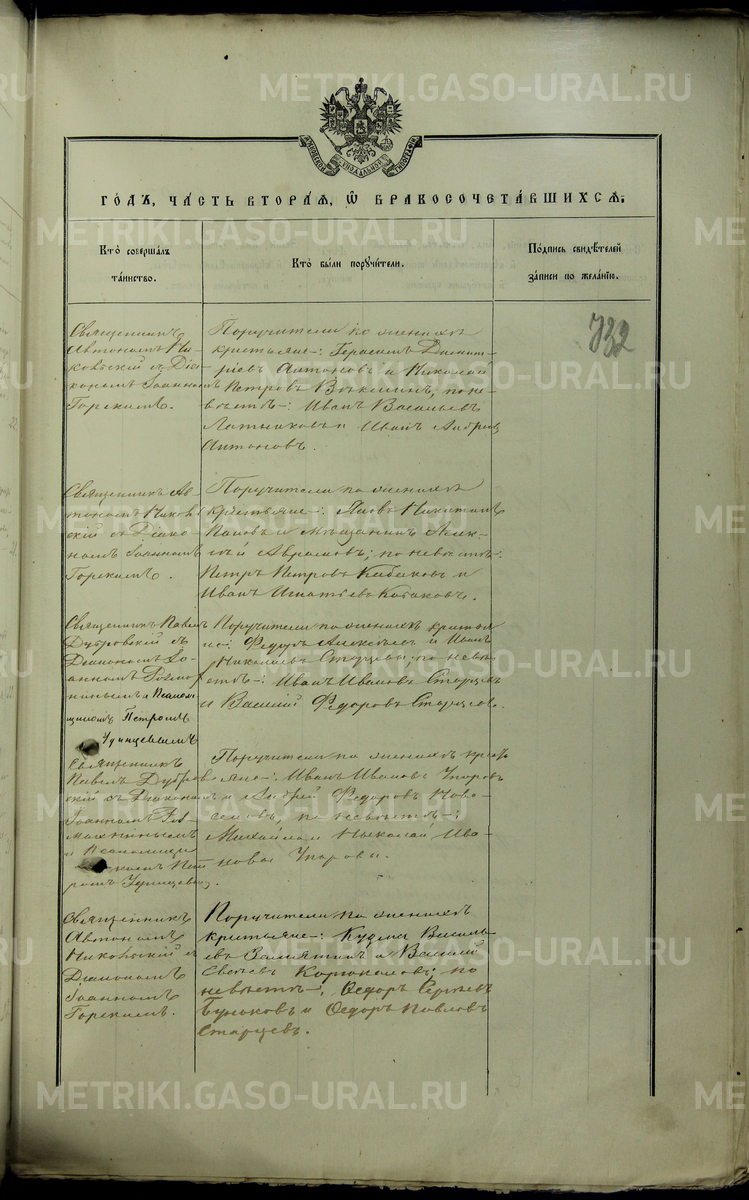 МОСКОВСКОЙ СѴНОДАЛЬНОЙ ТИПОГРАФІИ
ГОДЪ, ЧАСТЬ ВТОРАЯ, Ѡ БРАКОСОЧЕТАВШИХСЯ.
Кто совершалъ таинство.
Кто были поручители.
Подпись свидѣтелей записи по желанію.
732
Священникъ
Автономъ Ни-
ковскій съ Діа-
кономъ Іоанномъ
Горскимъ.
Поручители по женихѣ
крестьяне: Герасимъ Димит-
ріевъ Антоновъ и Николай
Петровъ по не-
вѣстѣ: Иванъ Васильевъ
Латниковъ и Иванъ Андреевъ
Антоновъ.
Священникъ Ав-
тономъ Ников-
скій съ Діако-
номъ Іоанномъ
Горскимъ.
Поручители по женихѣ
крестьяне: Яковъ Никитинъ
Поповъ и мѣщанинъ Алек-
сѣй Абрамовъ; по невѣстѣ:
Петръ Петровъ Кабаковъ и
Иванъ Игнатьевъ Кабаковъ.
Священникъ Павелъ
Дубровскій съ
Діакономъ Іо-
анномъ
и Псалом-
щикомъ Петромъ
Удинцевымъ
Поручители по женихѣ крестья-
не: Федоръ Алексѣевъ и Иванъ
Николаевъ Старцевы; по невѣ-
стѣ: Иванъ Ивановъ Старцевъ
и Василій Федоровъ Старцевъ.
Священникъ
Павелъ Дубров-
скій съ Діакономъ
Іоанномъ
и Псаломщи-
комъ Пет-
ромъ Удинцевымъ.
Поручители по женихѣ кресть-
яне: Иванъ Ивановъ Упоровъ
и Андрей Федоровъ Ново-
селовъ, по невѣстѣ:
Михайло и Николай Ива-
новы Упоровы.
Священникъ
Автономъ
Никовскій съ
Діакономъ
Іоанномъ
Горскимъ.
Поручители по женихѣ
крестьяне: Кузма Василь-
евъ Замятинъ и Василій
по
невѣстѣ: Ѳедоръ Сергѣевъ
и Ѳедоръ Павловъ
Старцевъ.
METRIKI.GASO-URAL.RU